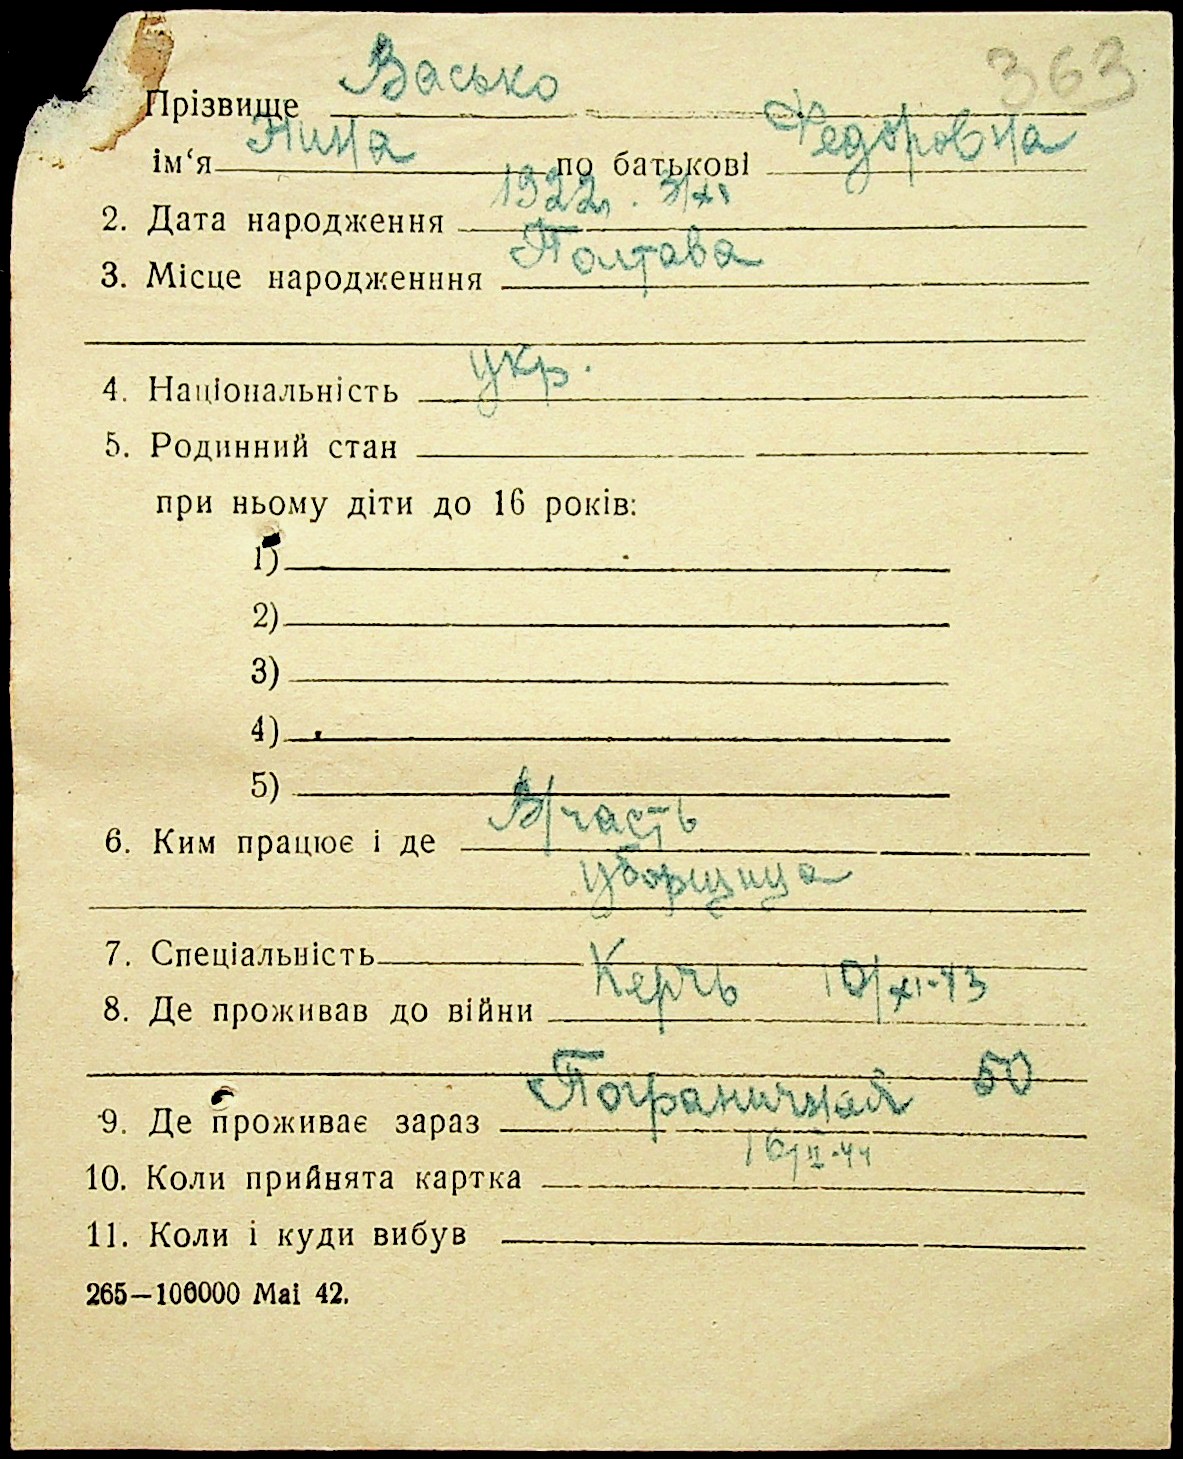 363
Прізвище Васько
ім‘я Нина по батькові Федоровна
2. Дата народження 1922, . 3/XI
3. Місце народженння Полтава
4. Національність укр.
5. Родинний стан
при ньому діти до 16 років:
1)
2)
3)
4)
5)
6. Ким працює і де В/часть
уборщица
7. Спеціальність
8. Де проживав до війни Керчь 10/XI-43
9. Де проживає зараз Пограничная 50
10. Коли прийнята картка 16/II-44
11. Коли і куди вибув
265—100000 Маі 42.